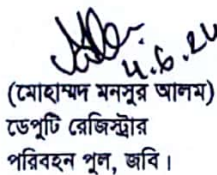 4.6.24
(মোহাম্মদ মনসুর আলম)
ডেপুটি রেজিস্ট্রার
পরিবহন পুল, জবি।